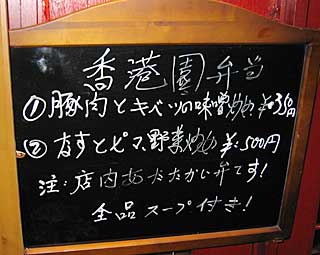 香港園弁当
①豚肉とキベツの味噌炒め ¥350円
②なすとピマ野菜炒め ¥500円
注:店内あたたかい弁です!
全品スープ付き!